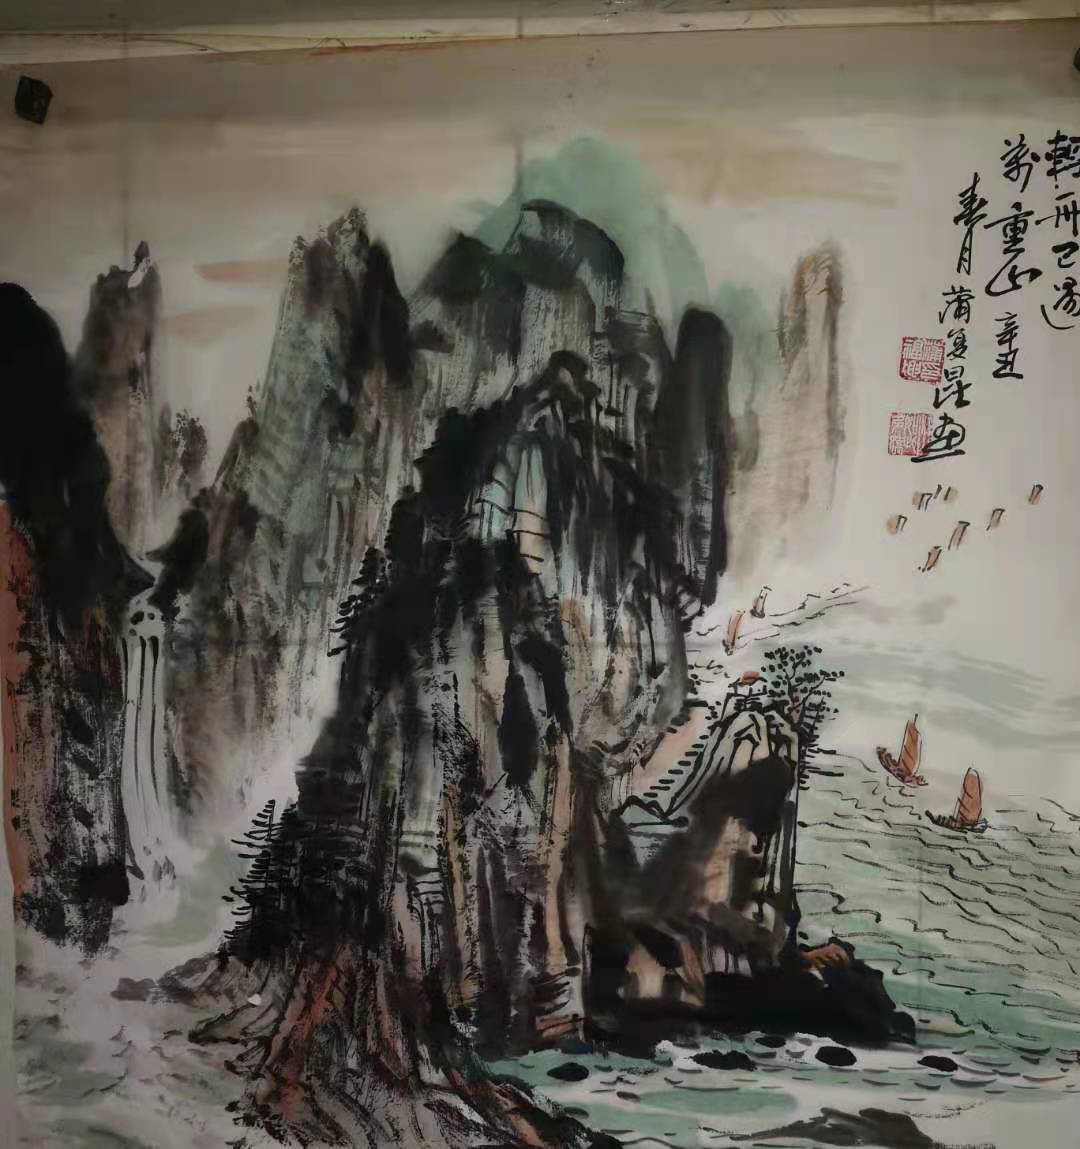 輕舟已過
萬重山 辛丑
春月 蒲复昆画